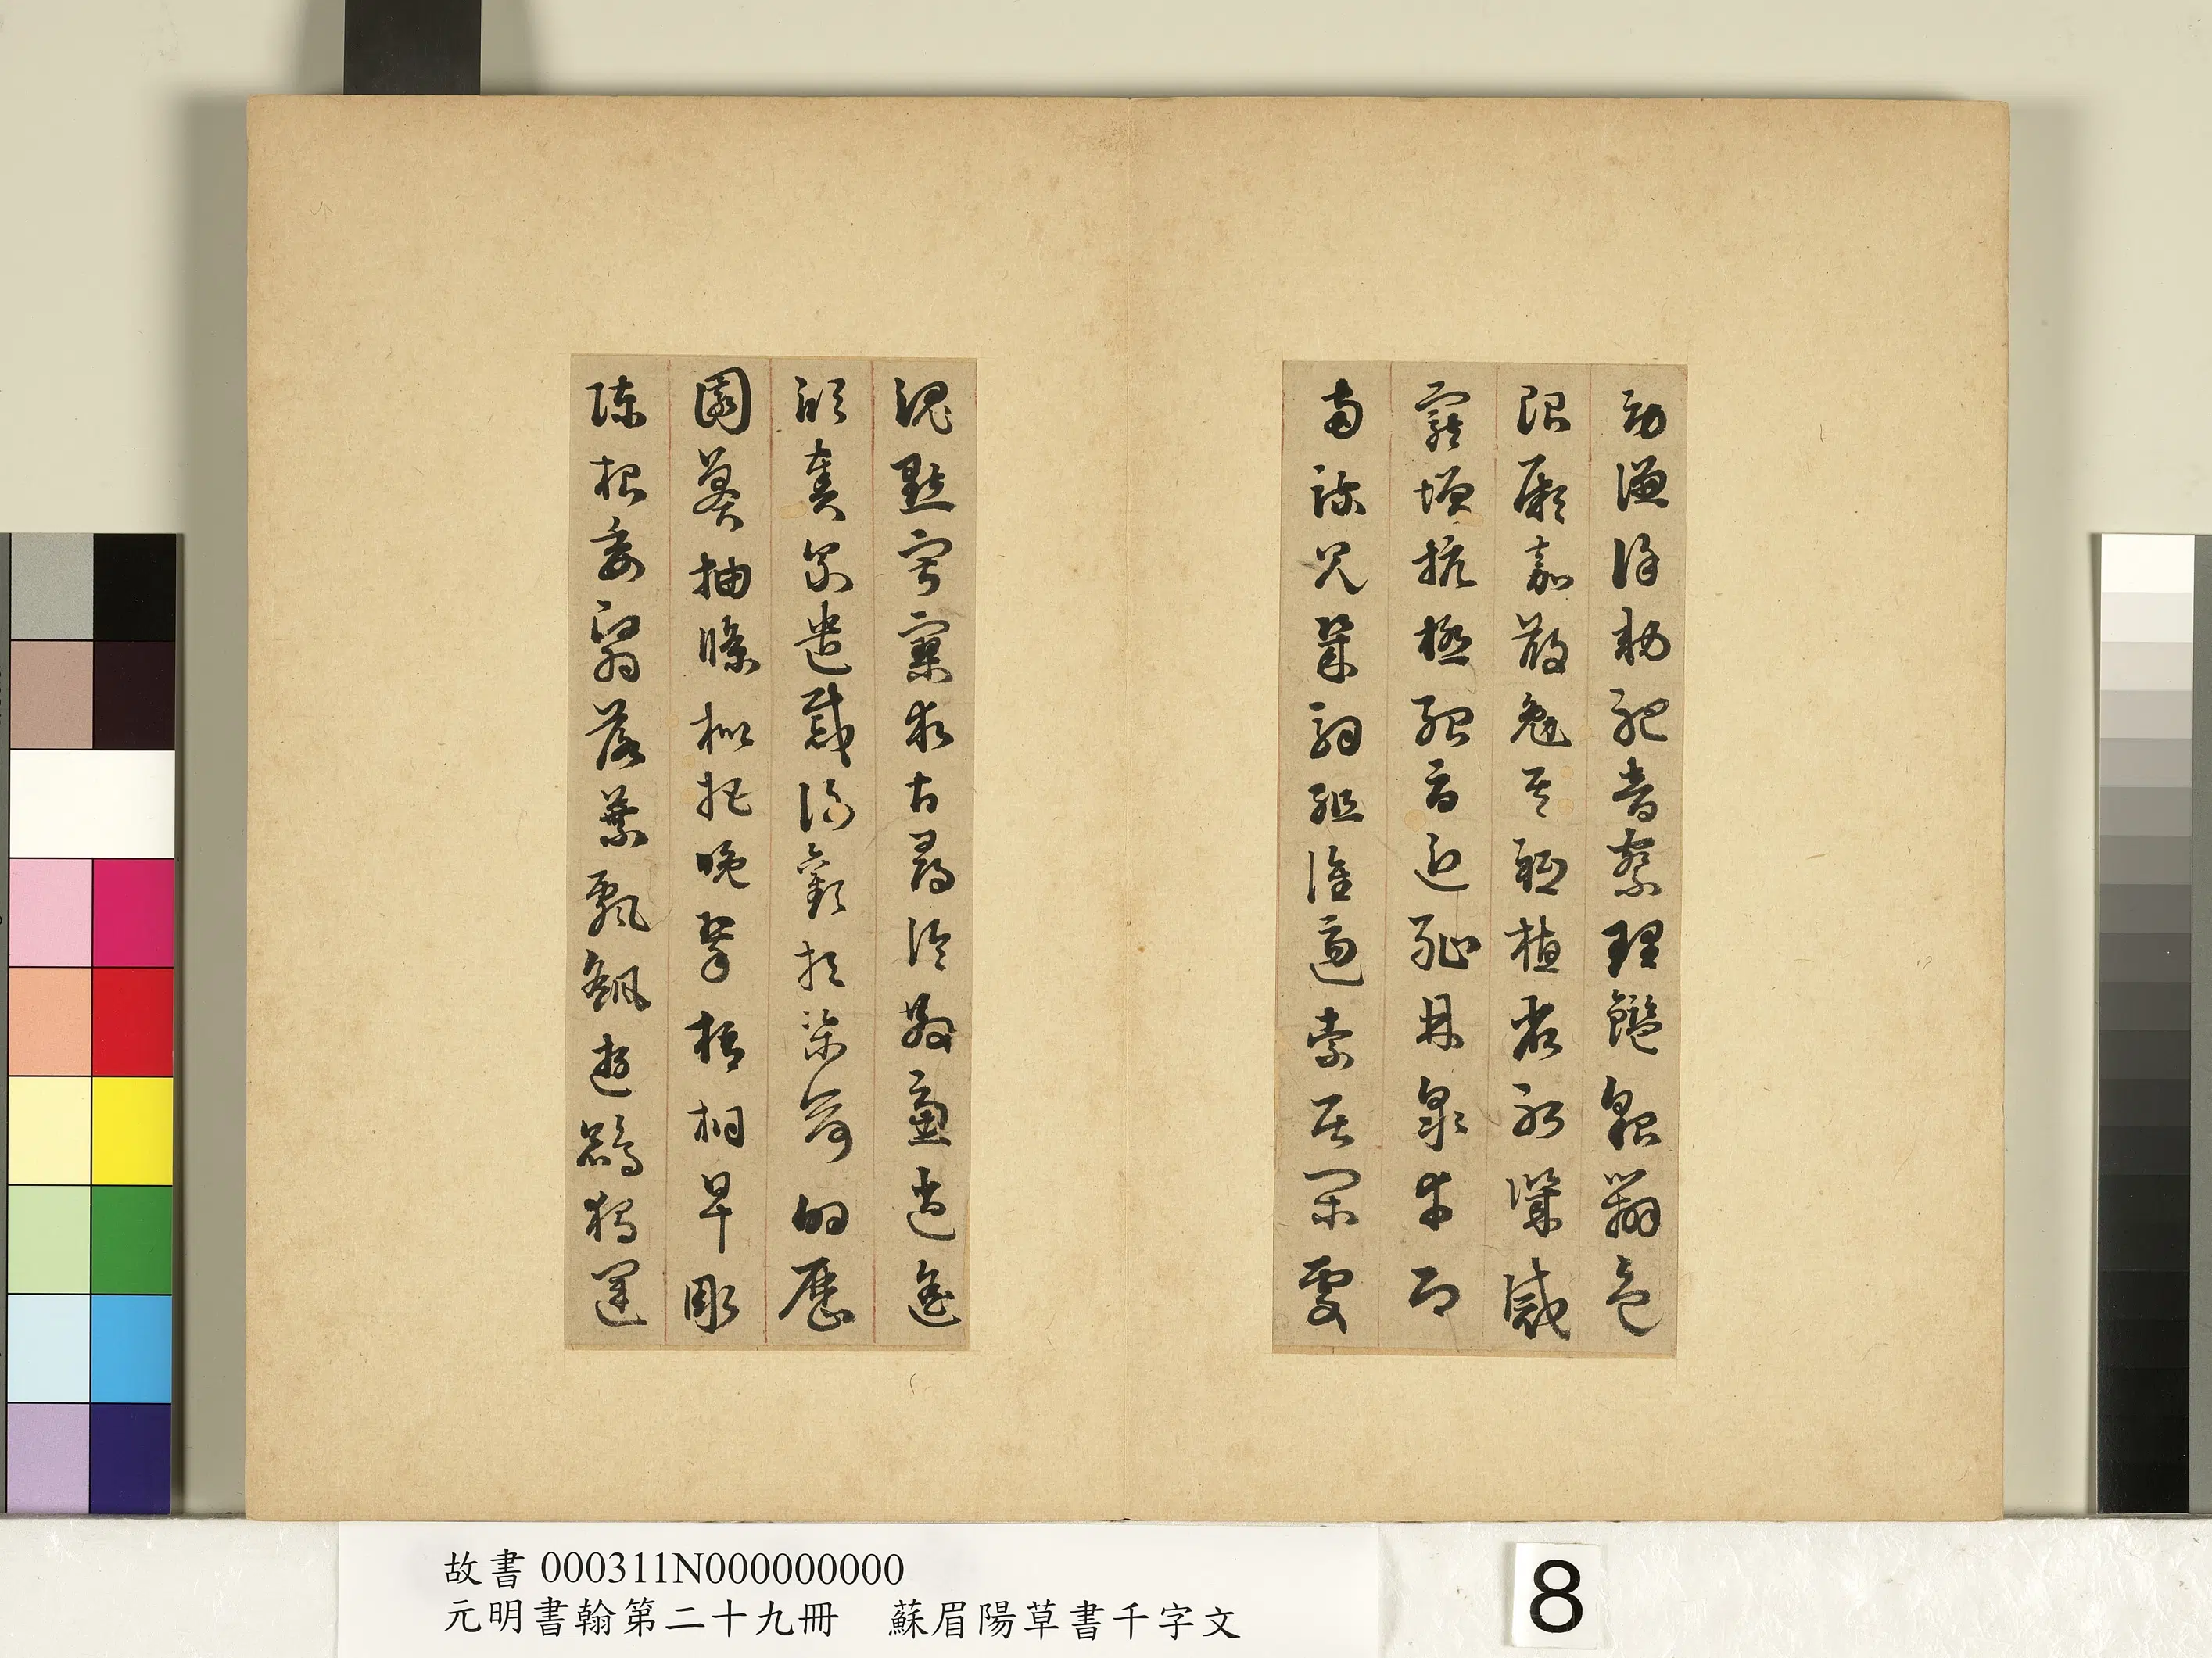 勞謙謹勅聆音察理鑑貌辨色
貽厥嘉猷勉其祗植省躬譏誡
寵增抗極殆辱近恥林皋幸即
兩疏見機解組誰逼索居閑處
沉默寂寥求古尋論散慮逍遙
欣奏累遣慼謝歡招渠荷的歷
園莽抽條枇杷晚翠梧桐早彫
陳根委翳落葉飄颻遊鵾獨運
故書 000311N000000000
元明書翰第二十九冊 蘇眉陽草書千字文
8